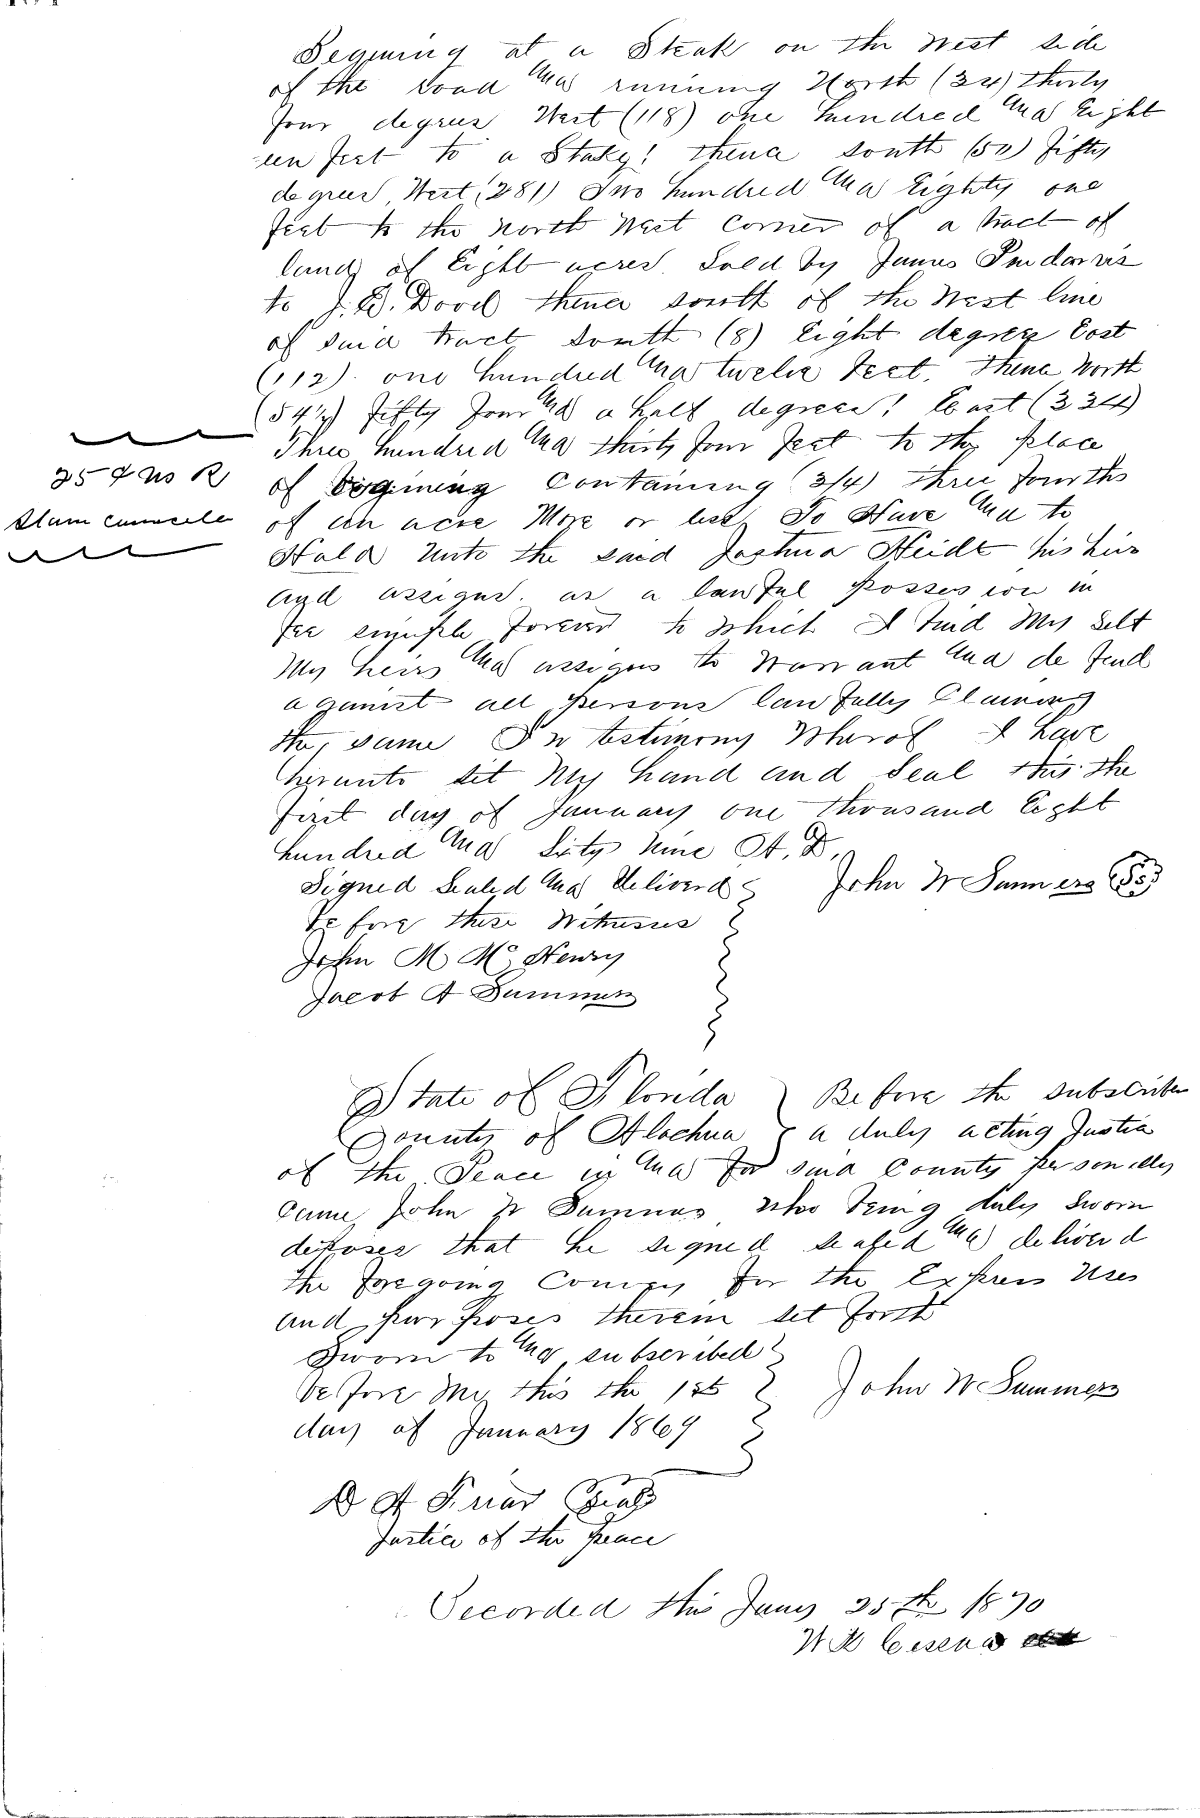 Begining at a Steak on the West side
of the road and running North (34) thirty
four degrees West (118) one hundred and Eight
een feet to a Stake! thence south (50) fifty
degrees West (281) Two hundred and Eighty one
feet to the North West Corner of a tract of
land of Eight acres Sold by James Pindarvis
to J. D. Dood thence south of the West line
of said tract South (8) Eight degrees East
(112) one hundred and twelve feet. Thence North
(54½) fifty four and a half degrees! East (334)
Three hundred and thirty four feet to the place
of begining Containing (3/4) three fourths
of an acre More or less To Have and to
Hold unto the said Joshua Heidt his heirs
and assigns. as a lawful possession in
fee simple forever to which I bind My Self
My heirs and assigns to Warrant and defend
against all persons lawfully Claiming
the same In testimony Wherof I have
hereunto set My hand and Seal this the
first day of January one thousand Eight
hundred and Sixty Nine A. D.
Signed Sealed and Deliverd John W Summers
Before these Witnesses
John M McHenry
Jacob A Summers
25 ¢ R
Stam
State of Florida Before the subscriber
County of Alachua a duly acting Justice
of the Peace in and for said County personally
came John W Summers who being duly Sworn
deposes that he signed sealed and deliverd
the foregoing Convey for the Express Uses
and purposes therein set forth
Sworn to and subscribed
before Me this the 1st John W Summers
day of January 1869
D A Friar Seal
Justice of the Peace
Recorded this Jany 25th 1870
W K Cessna